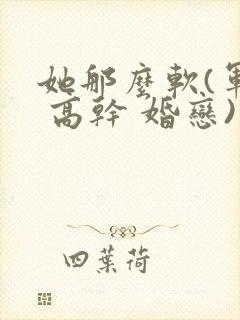 她那麼軟(軍
高幹 婚戀)
四葉荷